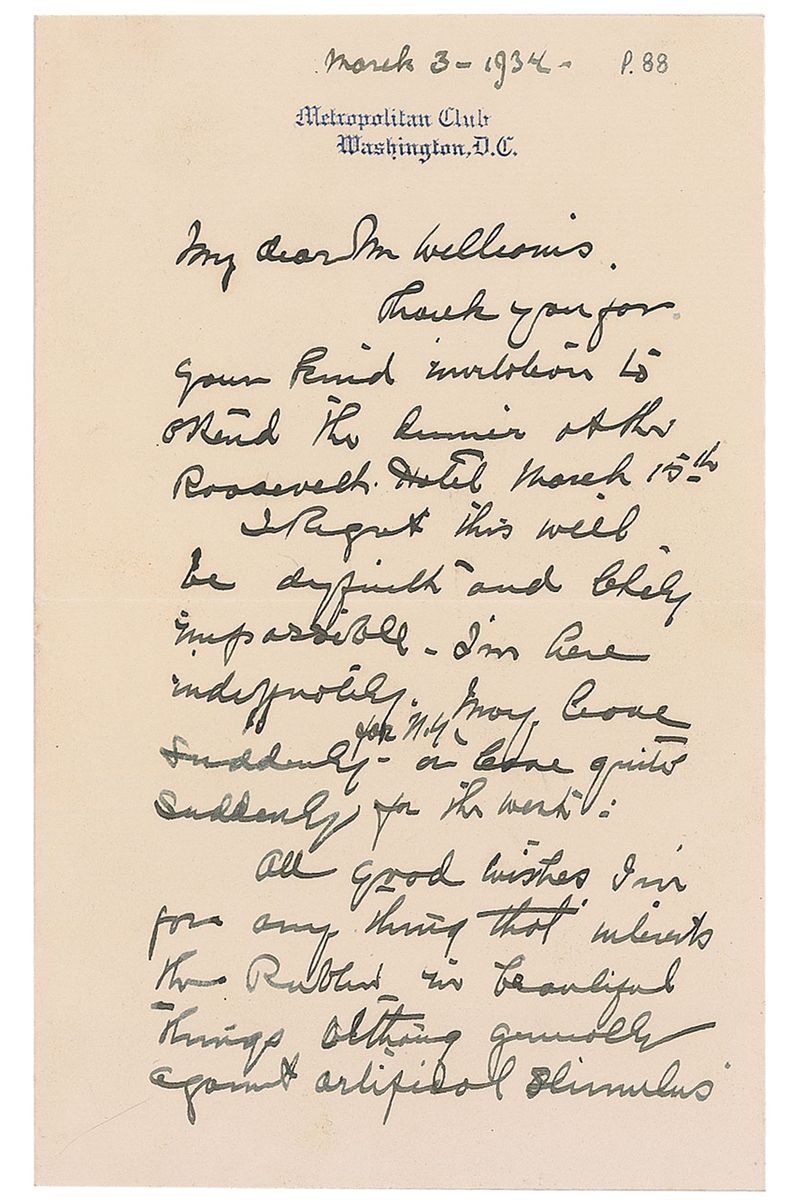 March 3 - 1934 - P. 88
Metropolitan Club
Washington, D.C.
My dear Mr Williams.
Thank you for
your kind invitation to
attend the dinner at the
Roosevelt Hotel March 15th
I Regret this will
be difficult and likely
impossible - I'm here
indeffinately. May leave
for N.Y.
Suddenly - or leave quite
Suddenly for the west :
All good wishes I'm
for any thing that interests
the Public in beautiful
things althoug generally
against artifical Stimulus